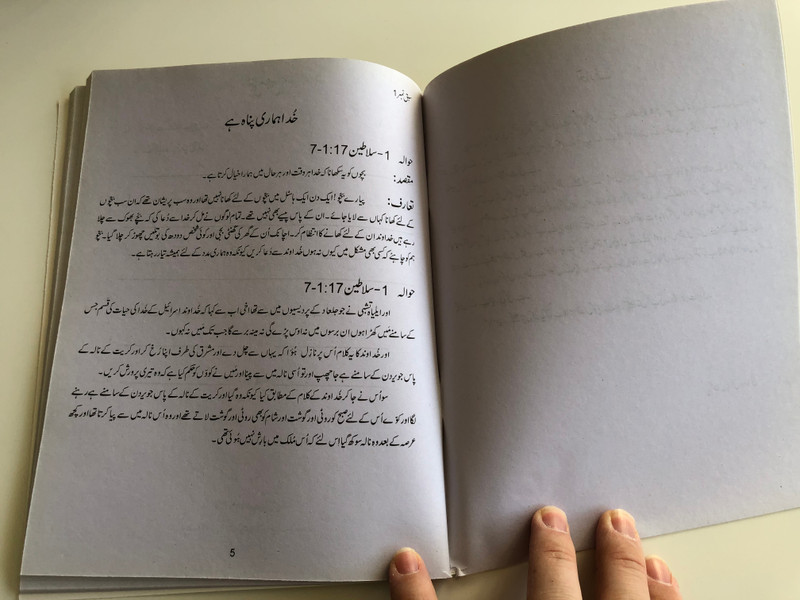 سبق نمبر 1
خُدا ہماری پناہ ہے
حوالہ 1-سلاطین 1:17-7
مقصد: بچوں کو یہ سکھانا کہ خدا ہر وقت اور ہر حال میں ہمارا خیال کرتا ہے۔
تعارف: پیارے بچو! ایک دن ایک ہاسٹل میں بچوں کے لئے کھانا نہیں تھا اور وہ سب پریشان تھے کہ ان سب بچوں
کے لئے کھانا کہاں سے لایا جائے۔ ان کے پاس پیسے بھی نہیں تھے۔ تمام لوگوں نے مل کر خدا سے دُعا کی کہ بچے بھوک سے چلا
رہے ہیں خداوند ان کے لئے کھانے کا انتظام کر۔ اچانک اُن کے گھر کی گھنٹی بجی اور کوئی شخص دودھ کی بوتلیں چھوڑ کر چلا گیا۔ بچو
ہم کو چاہئے کہ کسی بھی مشکل میں کیوں نہ ہوں خُداوند سے دُعا کریں کیونکہ وہ ہماری مدد کے لئے ہمیشہ تیار رہتا ہے۔
حوالہ 1-سلاطین 1:17-7
اور ایلیاہ تشبی نے جو جلعاد کے پردیسیوں میں سے تھا اخی اب سے کہا کہ خُداوند اسرائیل کے خُدا کی حیات کی قسم جس
کے سامنے میں کھڑا ہوں ان برسوں میں نہ اوس پڑے گی نہ مینہ برسے گا جب تک میں نہ کہوں۔
اور خُداوند کا یہ کلام اُس پر نازل ہُوا کہ یہاں سے چل دے اور مشرق کی طرف اپنا رُخ کر اور کریت کے نالہ کے
پاس جو یردن کے سامنے ہے جا چھپ اور تو اُسی نالہ میں سے پینا اور میں نے کوّوں کو حکم کیا ہے کہ وہ تیری پرورش کریں۔
سو اُس نے جا کر خُداوند کے کلام کے مطابق کیا کیونکہ وہ گیا اور کریت کے نالہ کے پاس جو یردن کے سامنے ہے رہنے
لگا اور کوّے اُس کے لئے صبح کو روٹی اور گوشت اور شام کو بھی روٹی اور گوشت لاتے تھے اور وہ اُس نالہ میں سے پیا کرتا تھا اور کچھ
عرصہ کے بعد وہ نالہ سوکھ گیا اِس لئے کہ اُس مُلک میں بارش نہیں ہُوئی تھی۔
5